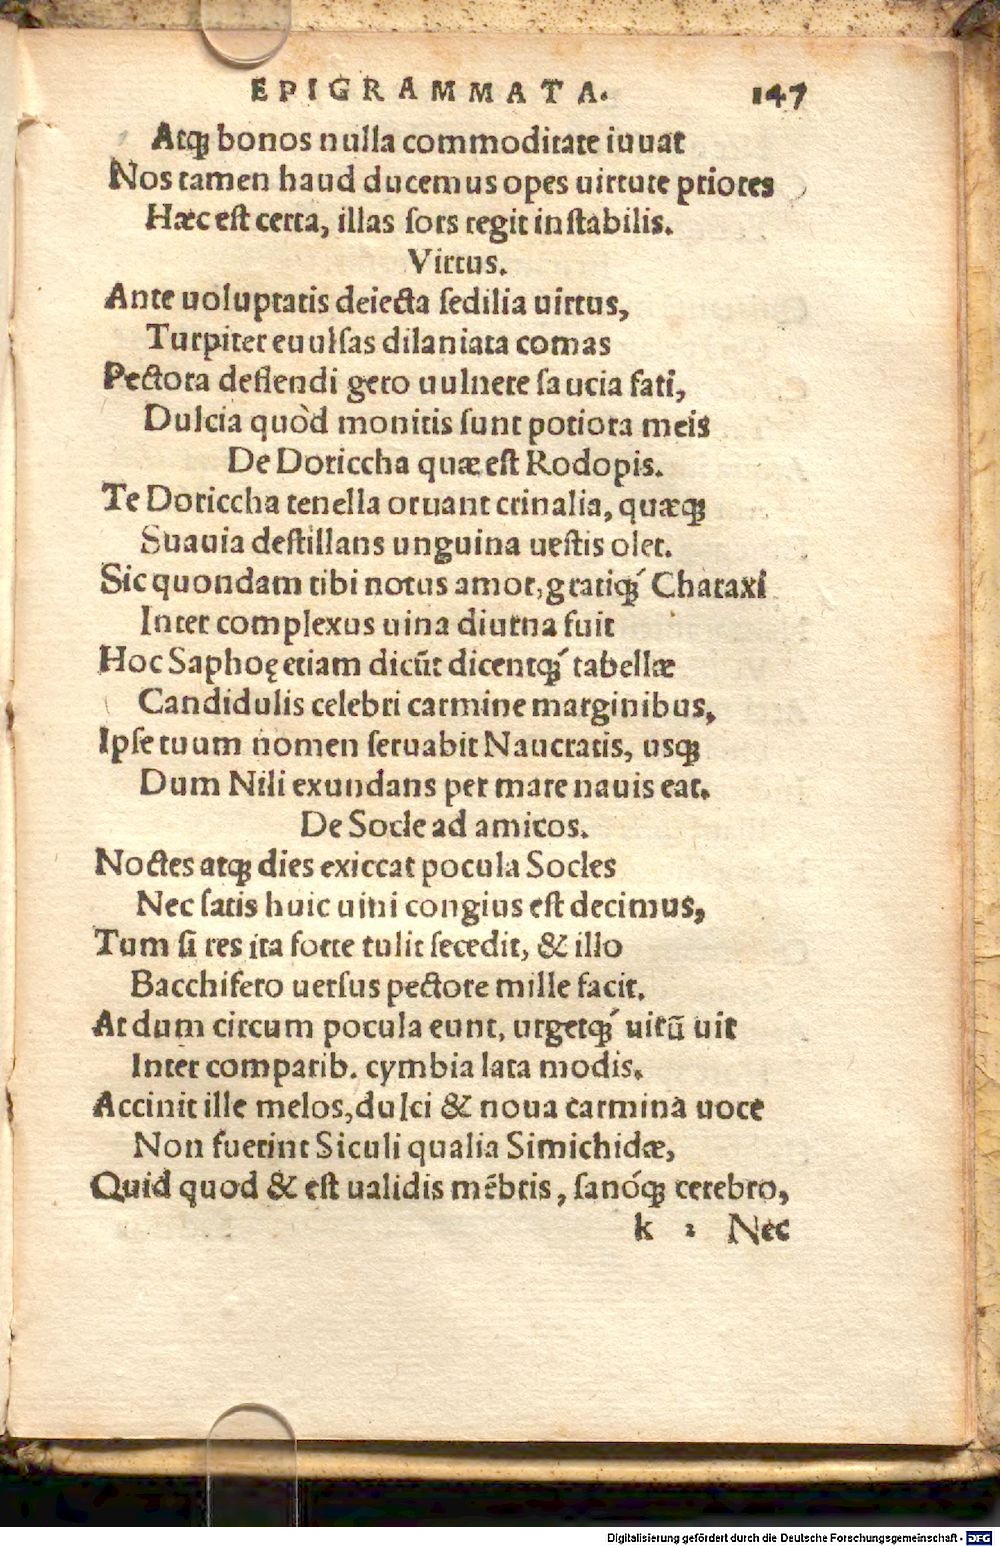 EPIGRAMMATA. 147
Atq; bonos nulla commoditate iuuat
Nos tamen haud ducemus opes uirtute priores
Hæc est certa, illas sors regit instabilis.
Virtus.
Ante uoluptatis deiecta sedilia uirtus,
Turpiter euulsas dilaniata comas
Pectora deflendi gero uulnere saucia fati,
Dulcia quòd monitis sunt potiora meis
De Doriccha quæ est Rodopis.
Te Doriccha tenella ornant crinalia, quæq;
Suauia destillans unguina uestis olet.
Sic quondam tibi notus amor, gratiq;́ Charaxi
Inter complexus uina diurna fuit
Hoc Saphoę etiam dicũt dicentq;́ tabellæ
Candidulis celebri carmine marginibus,
Ipse tuum nomen seruabit Naucratis, usq;
Dum Nili exundans per mare nauis eat.
De Socle ad amicos.
Noctes atq; dies exiccat pocula Socles
Nec satis huic uini congius est decimus,
Tum si res ita forte tulit secedit, & illo
Bacchifero uersus pectore mille facit.
At dum circum pocula eunt, urgetq;́ uitũ uit
Inter comparib. cymbia lata modis.
Accinit ille melos, dulci & noua carmina uoce
Non fuerint Siculi qualia Simichidæ,
Quid quod & est ualidis mẽbris, sanóq; cerebro,
k 2 Nec
Digitalisierung gefördert durch die Deutsche Forschungsgemeinschaft - DFG